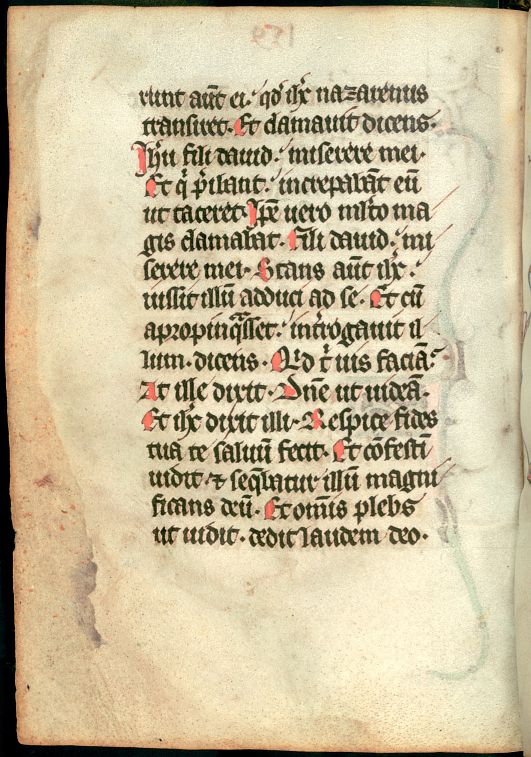 runt aūt ei. qd̄ ih̄c nazarenus
transiret. Et clamauit dicens.
Ih̄u fili dauid. miserere mei.
Et q̄ p̄ibant. increpabāt eū
ut taceret. Ip̄e uero ml̄to ma
gis clamabat. Fili dauid. mi
serere mei. Stans aūt ih̄c.
iussit illū adduci ad se. Et cū
apropinq̄sset. int̄rogauit il
lum. dicens. Qid t̄ uis faciā.
At ille dixit. Dn̄e ut uideā.
Et ih̄c dixit illi. Respice fides
tua te saluū fecit. Et cōfestī
uidit. ⁊ seq̄batur illū magni
ficans deū. Et om̄is plebs
ut uidit. dedit laudem deo.